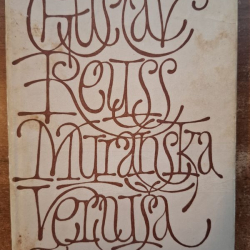 Gustáv
Reuss
Muránska
Veruša